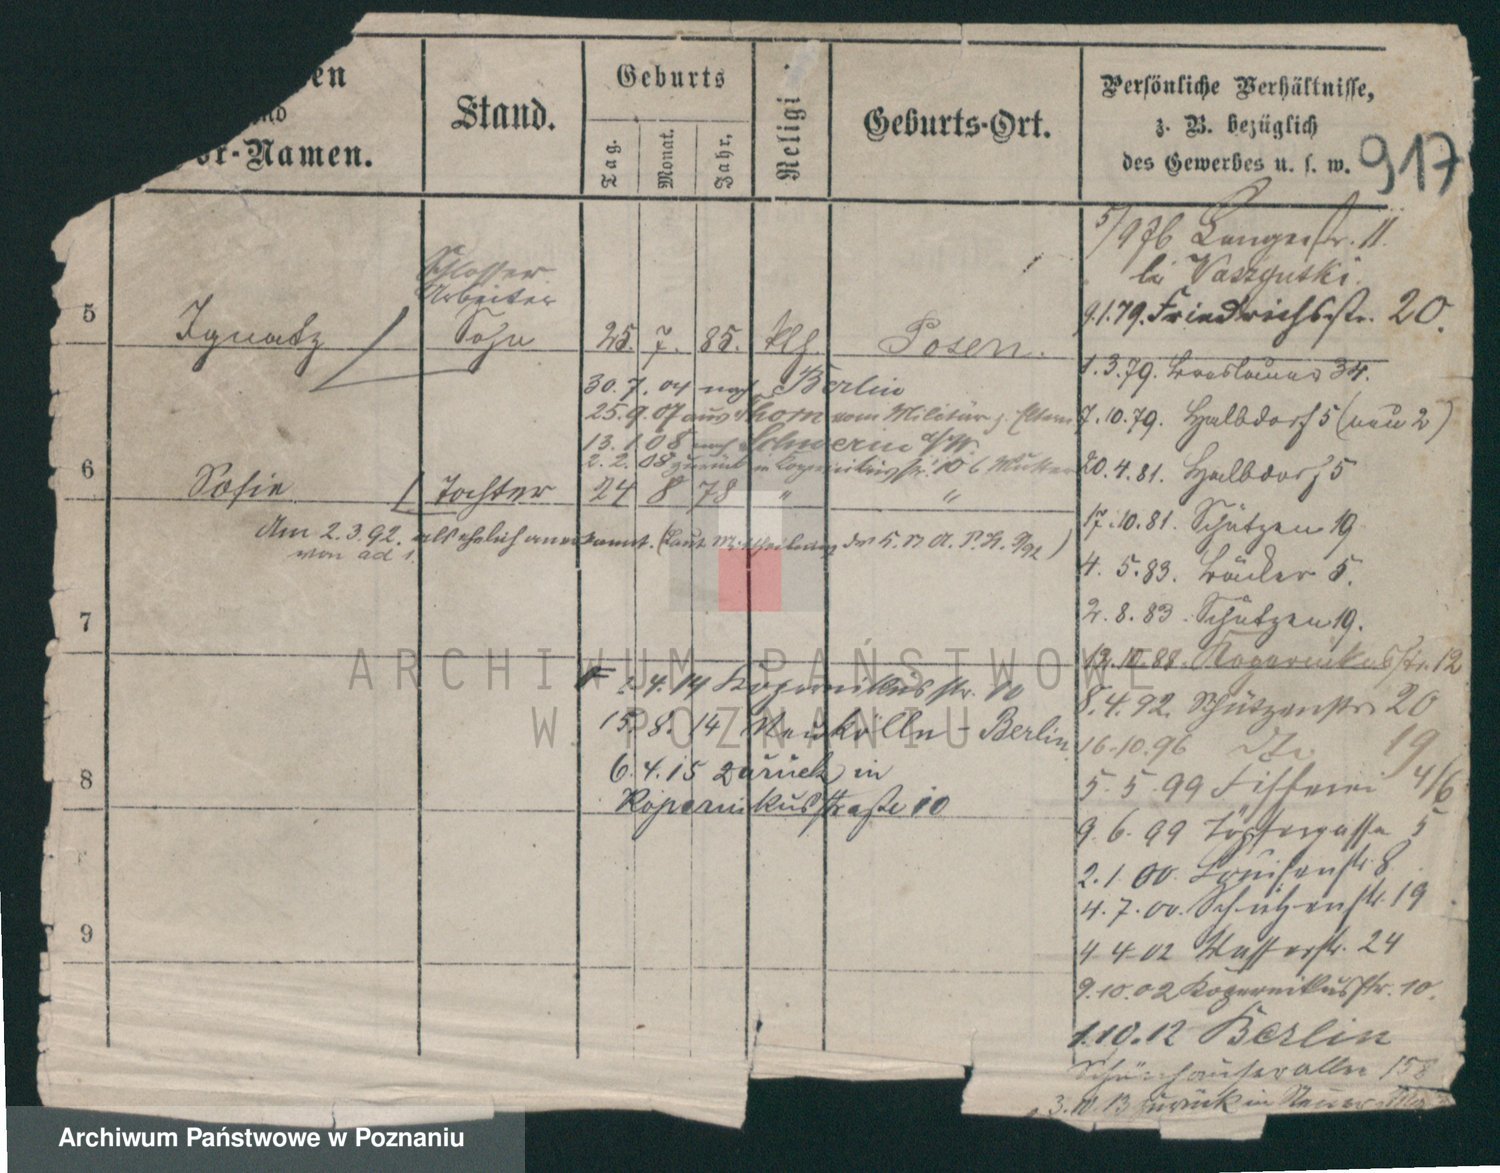 en
nd
or-Namen.
Stand.
Geburts
Tag.
Monat.
Jahr,
Religi
Geburts-Ort.
Persönliche Verhältnisse,
z. B. bezüglich
des Gewerbes u. s. w.
917
5/9 76 Langestr. 11.
bei
9.1.79. Friedrichsstr. 20.
Schlosser
Arbeiter
5 Ignatz Sohn 25. 7. 85. klg. Posen.
1.3.79. Breslauer 34.
30.7.04 nach Berlin
25.9.07 aus Thorn vom Militär z. Eltern
7.10.79. Halbdorf 5 (neu 2)
13.1.08 nach Schwerin a/W.
2.2.08 zurück in Kopernikusstr. 10 b. Mutter
20.4.81. Halbdorf 5
6 Sofie Tochter 24 8 78 " "
17.10.81. Schützen 19
Am 2.3.92. als ehelich anerkannt. (Laut Mittheilung
von ad 1.
4.5.83. Bäcker 5.
7
2.8.83. Schützen 19.
12.10.88. Kopernikusstr. 12
4.14 Kopernikusstr. 10
8.4.92. Schützenstr. 20
15.8.14 Neukölln - Berlin
16.10.96 19
6.4.15 zurück in
5.5.99 Fischerei 4/6
8
Kopernikusstraße 10
9.6.99 Töpfergasse 5
2.1.00. Louisenstr. 8
4.7.00. Schützenstr. 19
9
4.4.02 Wasserstr. 24
9.10.02 Kopernikusstr. 10.
1.10.12 Berlin
Schönhauserallee 158
3.10.13 zurück in
ARCHIWUM PAŃSTWOWE
W POZNANIU
Archiwum Państwowe w Poznaniu